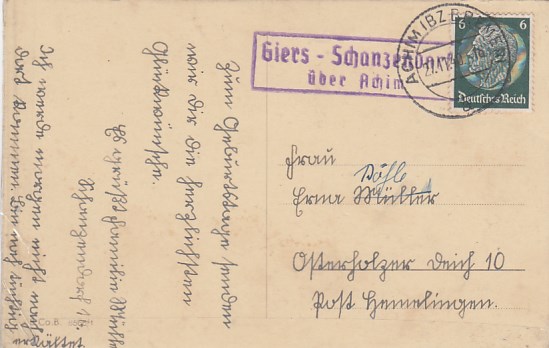 Giers - Schanzendorf
über Achim
ACHIM (BZ BREMEN)
6 6
Deutsches Reich
Zum Geburtstage senden
wir dir die herzlichsten
Glückwünsche.
Es grüßt Familie
Schanzendorf
Ich werde morgen nicht nach
dort kommen bin
erkältet
Frau
Döhle
Erna Müller
Osterholzer Deich 10
Post Hemelingen
Co. B.